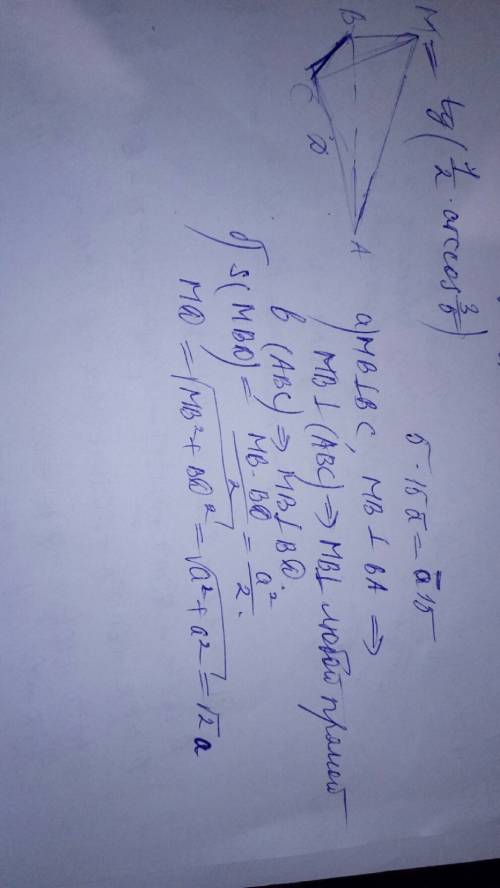 = tg(1/2 · arccos 3/5)
5 · 15a̅ = a̅15
M
B
C
D
A
а) MB⊥BC, MB ⊥ BA ⇒
MB⊥(ABC) ⇒ MB⊥ любой прямой
в (ABC) ⇒ MB⊥BD.
б) S(MBD) = MB·BD/2 = a²/2.
MD = √MB²+BD² = √a²+a² = √2 a